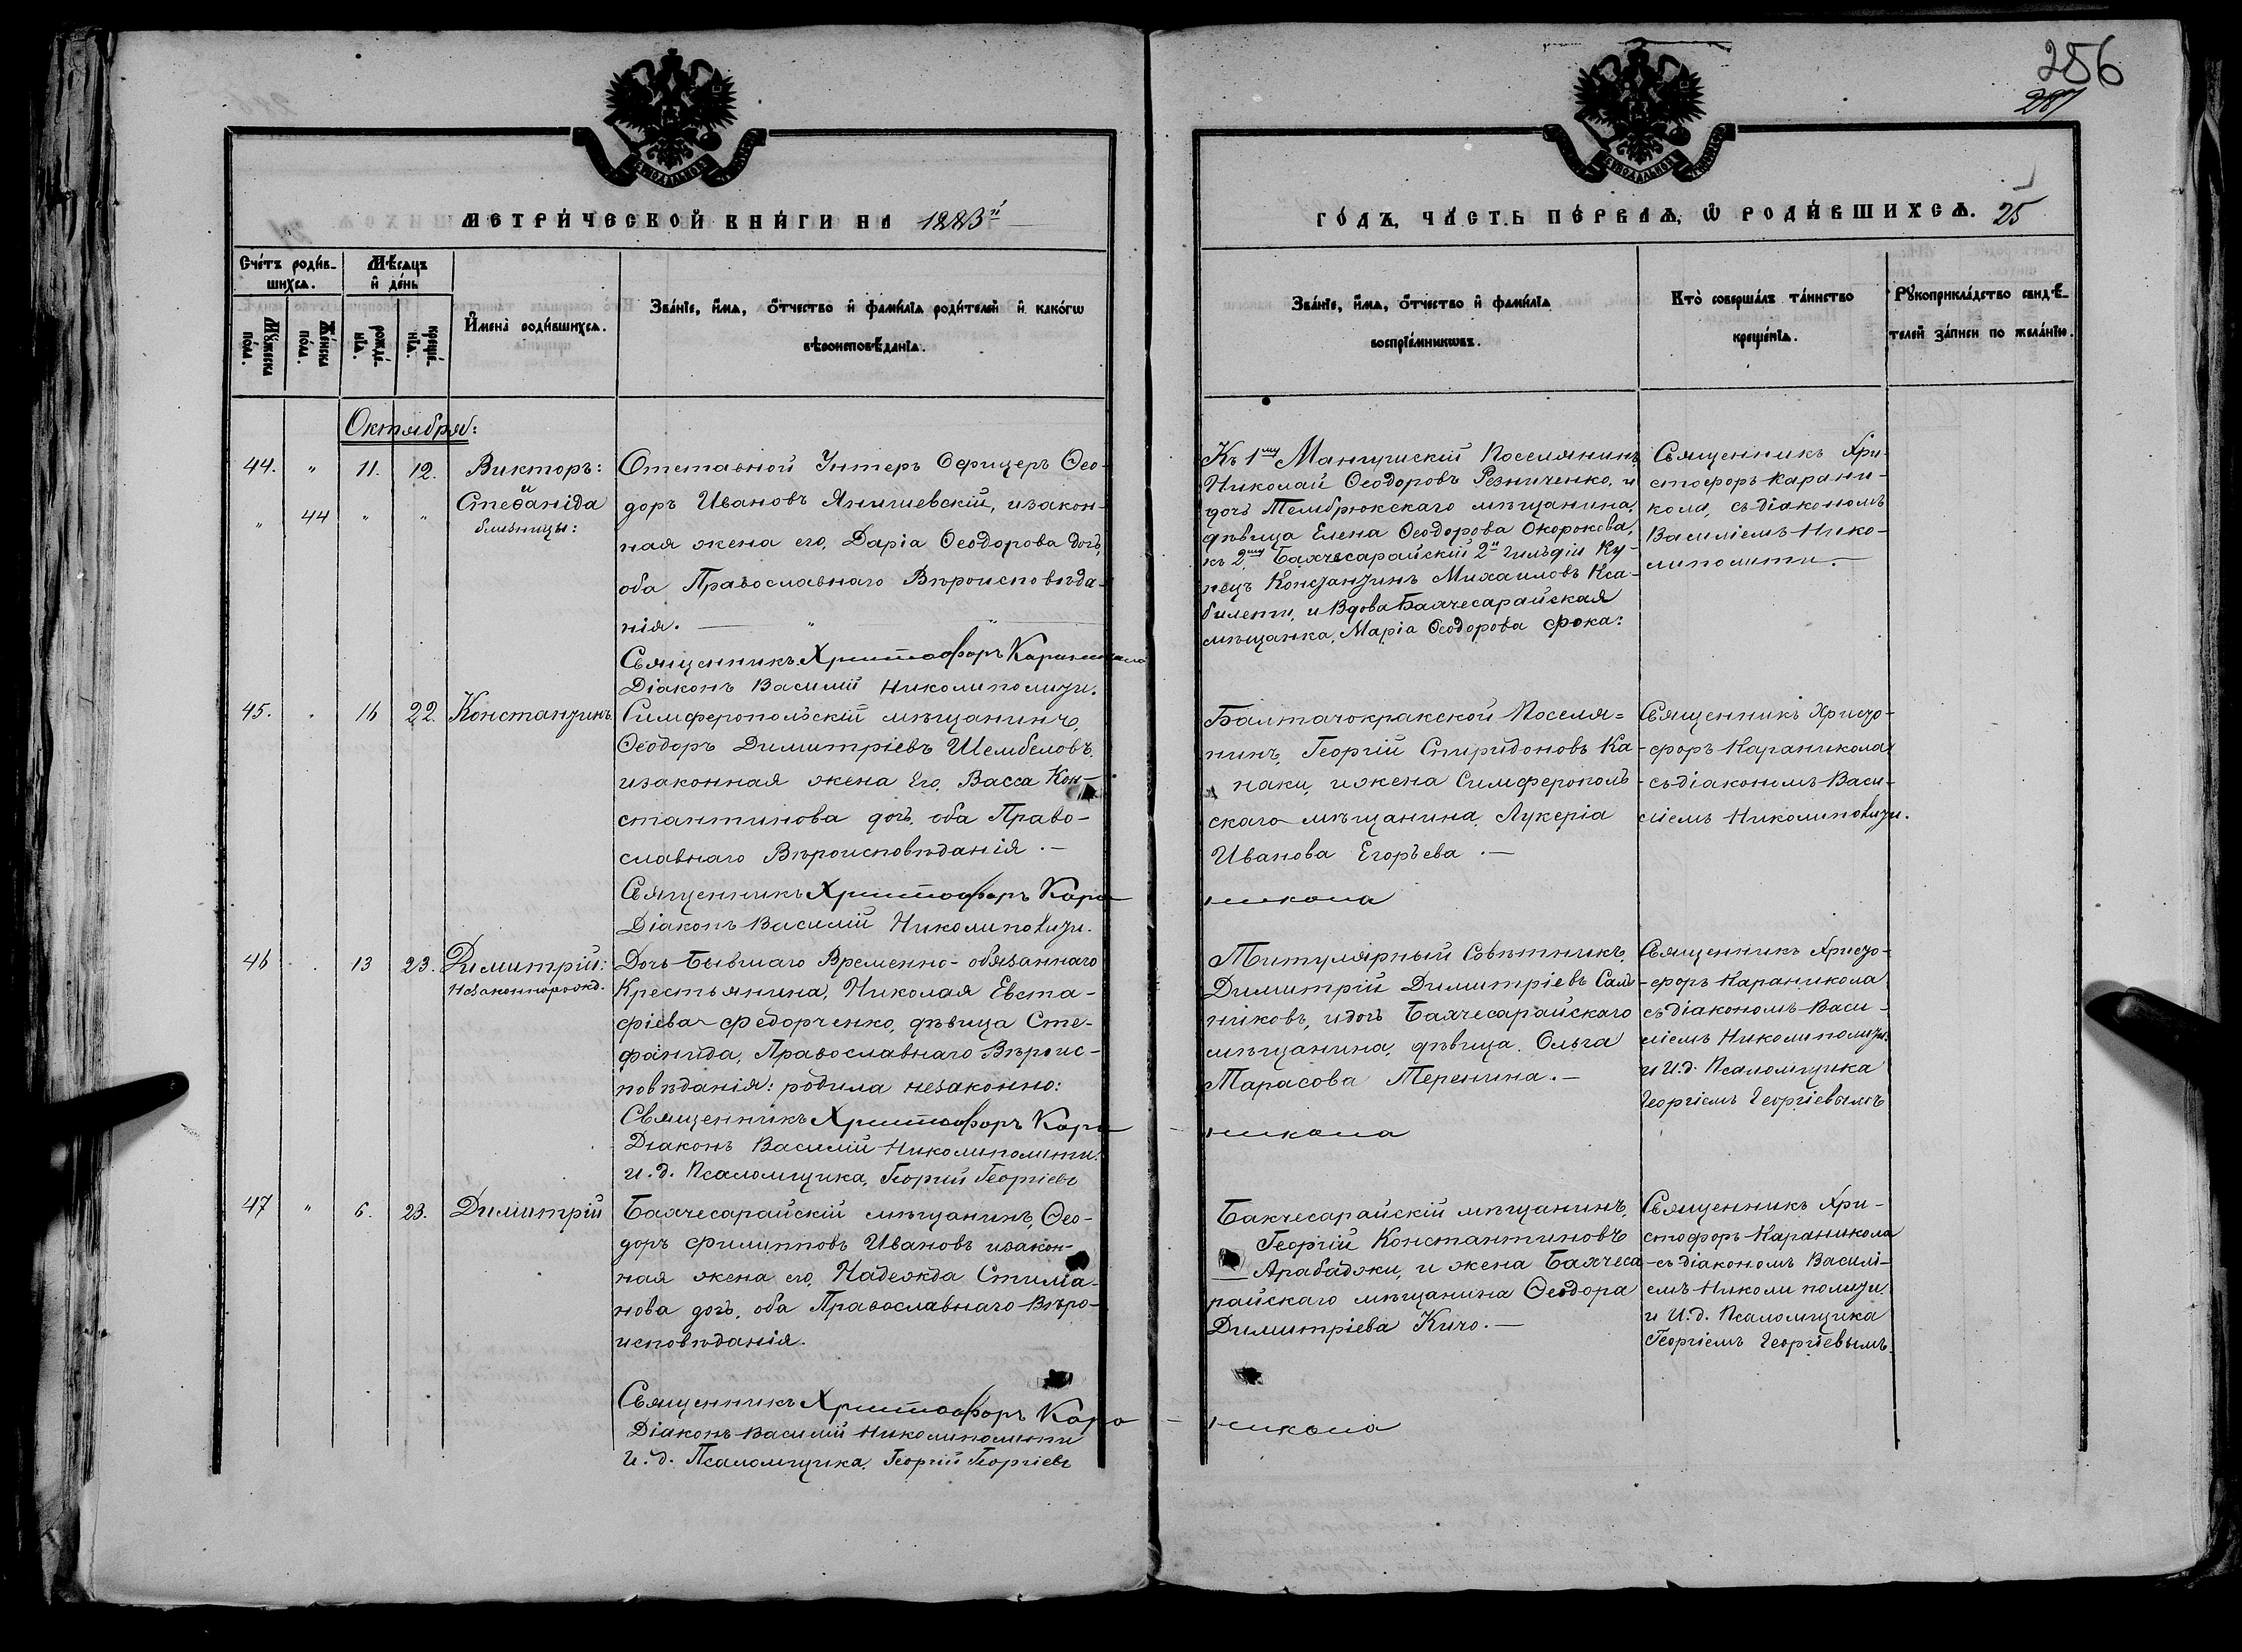 256
287
МЕТРИ́ЧЕСКОЙ КНИ́ГИ НА 1883й
ГО́ДЪ, ЧА́СТЬ ПЕ́РВАѦ, Ѿ РОДИ́ВШИХСѦ. 25
Сче́тъ роди́в-
шихсѧ.
Мꙋ́жеска по́ла.
Же́нска по́ла.
Мѣ́сѧцъ
и҆ де́нь
рожде́-
нїѧ.
креще́-
нїѧ.
И҆мена̀ роди́вшихсѧ.
Зва́нїе, и҆́мѧ, ѻ҆́тчество и҆ фамѝлїѧ роди́телей и҆ како́гѡ
вѣроисповѣ́данїѧ.
Зва́нїе, и҆́мѧ, ѻ҆́тчество и҆ фами́лїѧ
воспрїе́мникѡвъ.
Кто̀ соверша́лъ та́инство
креще́нїѧ.
Рꙋкоприкла́дство свидѣ́-
телей за́писи по жела́нїю.
Октября:
44. " 11. 12. Викторъ:
и
Стеѳаніда
" 44 " "
близницы:
Отставной Унтеръ Офицеръ Ѳео-
доръ Ивановъ Янишевскій, изакон-
ная жена его, Дарія Ѳеодорова дочь,
оба Православнаго Вѣроисповѣда-
нія. — " "
Священникъ Христофоръ Караникола
Діаконъ Василій Николиполити.
Къ 1му Мангушскій Поселянинъ
Николай Ѳеодоровъ Резниченко, и
дочь Темbрюкскаго мѣщанина,
дѣвица Елена Ѳеодорова Окорокова,
къ 2му Бахчесарайскій 2й Гильдіи Ку-
пецъ Константинъ Михаиловъ Кса-
билети, и Вдова Бахчесарайская
мѣщанка, Марія Ѳеодорова Фока:
Священникъ Хри-
стофоръ Карани-
кола, съ діакономъ
Василіемъ Нико-
липолити.—
45. " 16 22. Константинъ
Симферопольскій мѣщанинъ,
Ѳеодоръ Димитріевъ Шембеловъ,
изаконная жена Его, Васса Кон-
стантинова дочь, оба Право-
славнаго Вѣроисповѣданія.—
Священникъ Христофоръ Кара
Діаконъ Василій Николиполити.
Балтачокракской Поселя=
нинъ, Георгій Спиридоновъ Ка-
наки, и жена Симферополь
скаго мѣщанина, Лукерія
Иванова Егорьева.—
никола
Священникъ Христо-
форъ Караникола
съ діакономъ Васи-
ліемъ Николиполити.
46 " 13 23. Димитрій:
Незаконнорожд.
Дочь Бывшаго Временно-обязаннаго
Крестьянина, Николая Евста-
фіева Федорченко, дѣвица Сте-
фанида, Православнаго Вѣроис-
повѣданія: родила незаконно:
Священникъ Христофоръ Кара
Діаконъ Василій Николиполити.
И.д. Псаломщика, Георгій Георгіевъ
Титулярный Совѣтникъ,
Димитрій Димитріевъ Сали-
никовъ, и дочь Бахчесарайскаго
мѣщанина, дѣвица Ольга
Тарасова Теренина.—
никола
Священникъ Христо-
форъ Караникола
съ діакономъ Васи-
ліемъ Николиполити.
и И.д. Псаломщика
Георгіемъ Георгіевымъ
47 " 6. 23. Димитрій
Бахчесарайскій мѣщанинъ, Ѳео-
доръ Филипповъ Ивановъ изакон-
ная жена его, Надежда Стиліа-
нова дочь, оба Православнаго Вѣро-
исповѣданія.
Священникъ Христофоръ Кара
Діаконъ Василій Николиполити
И.д. Псаломщика, Георгій Георгіевъ
Бахчесарайскій мѣщанинъ,
Георгій Константиновъ
Арабаджи, и жена Бахчеса-
райскаго мѣщанина Ѳеодора
Димитріева Кичо.—
никола
Священникъ Хри-
стофоръ Караникола
съ діакономъ Василі-
емъ Николиполити.
и И.д. Псаломщика
Георгіемъ Георгіевымъ.